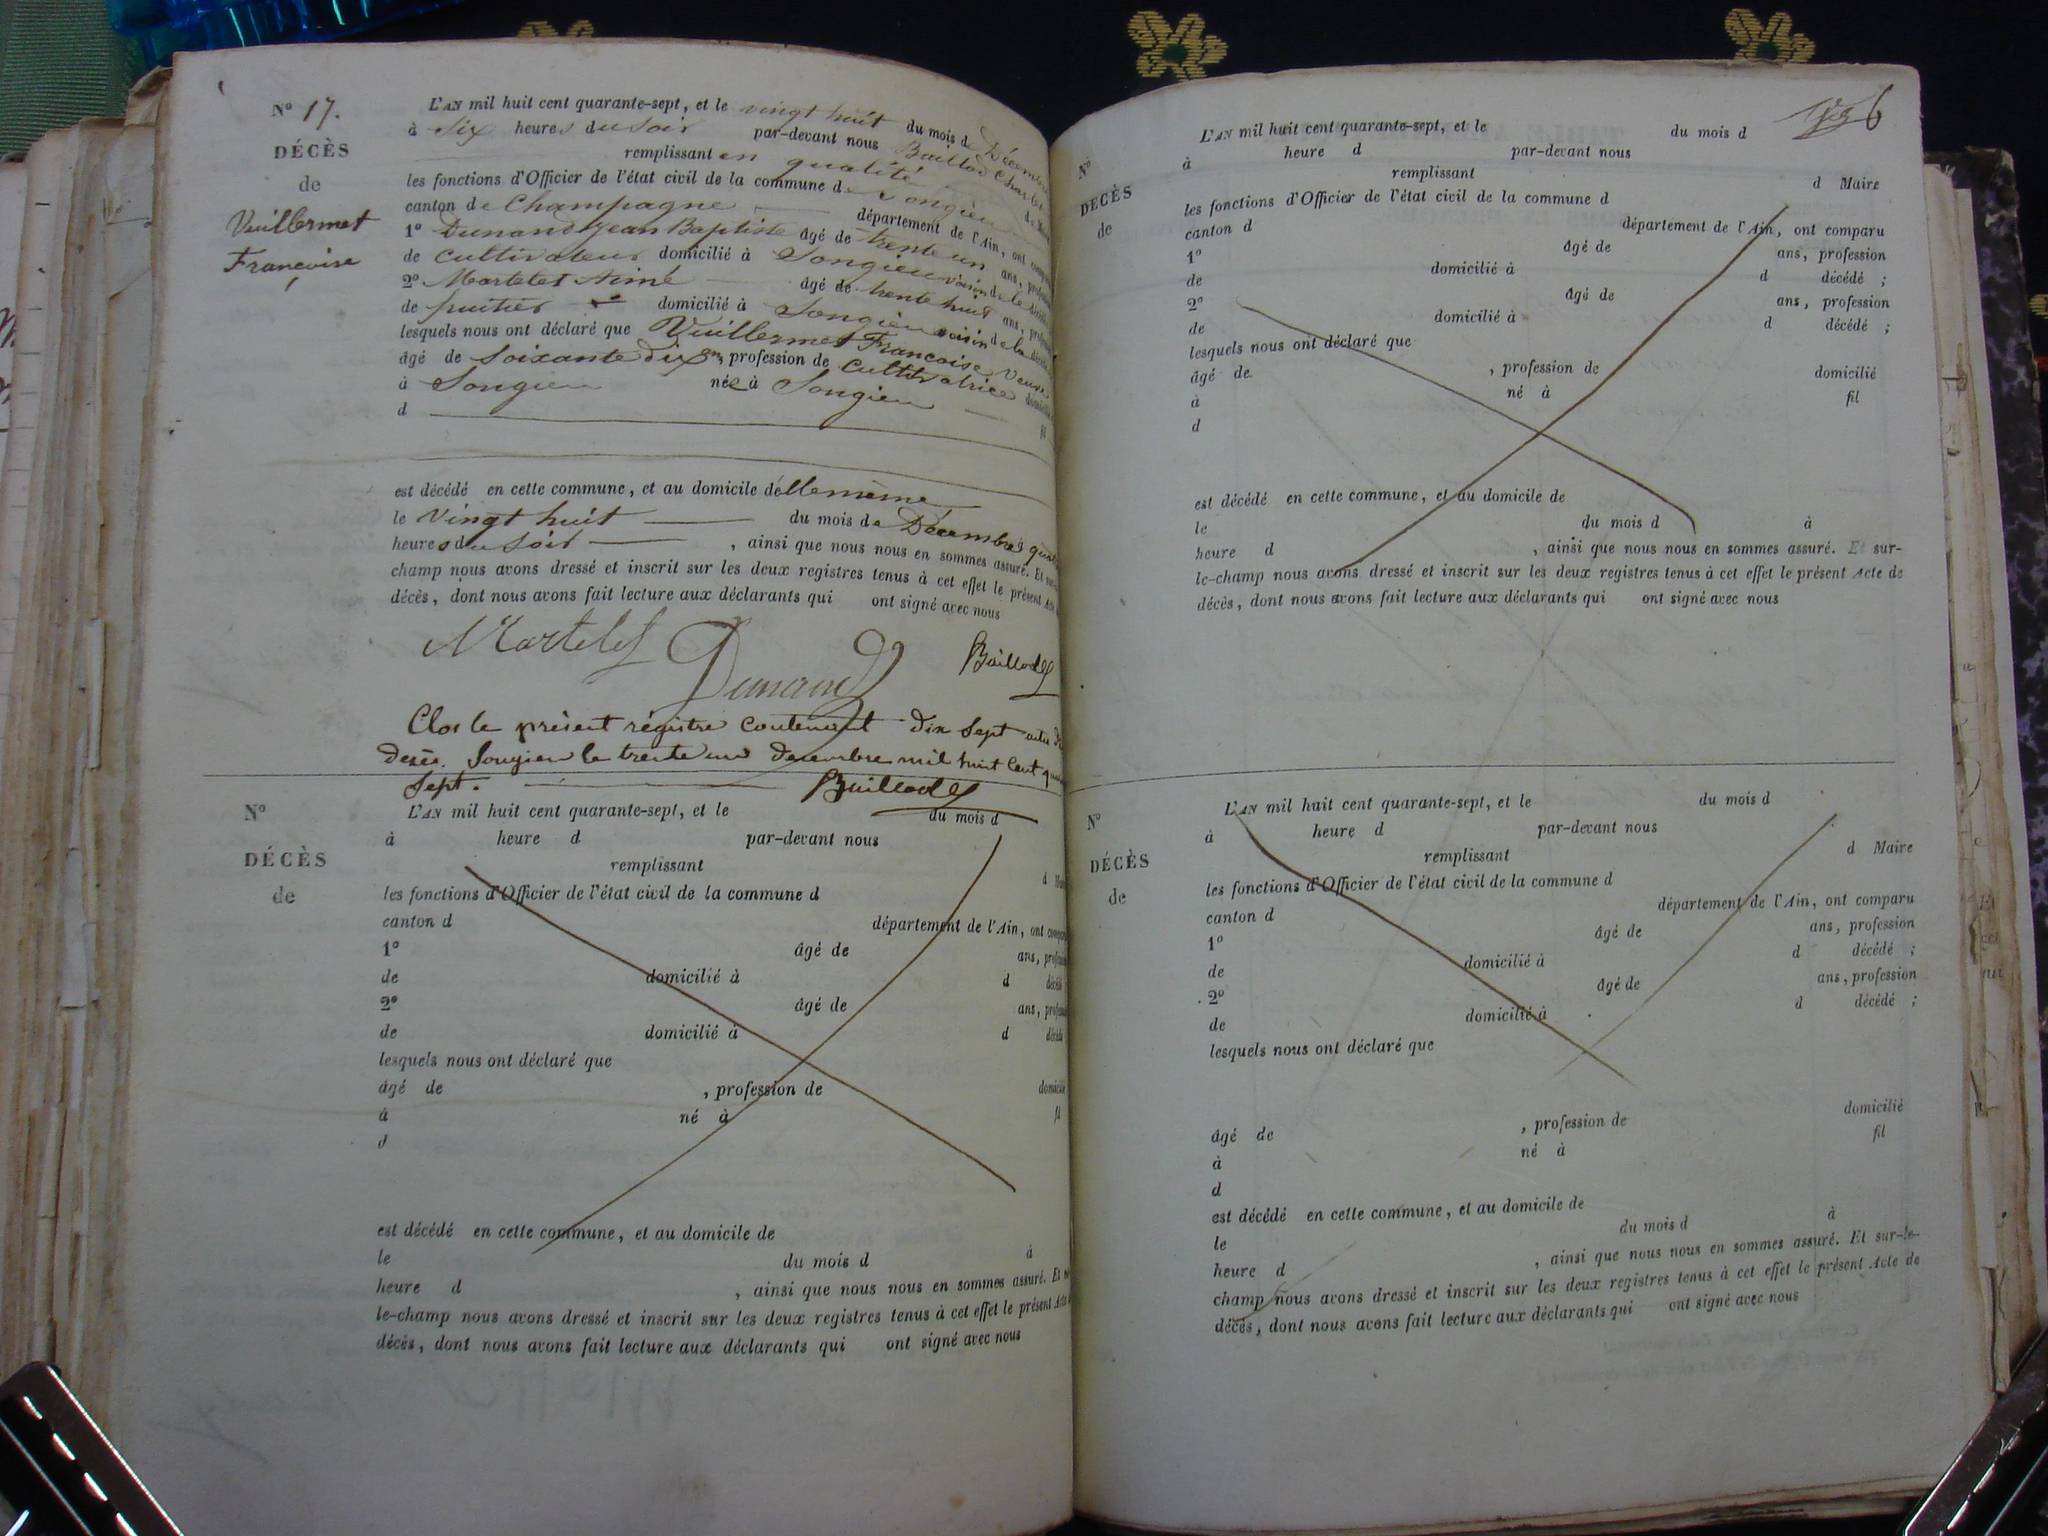 N° 17.
DÉCÈS
de
Vuillermet
Françoise
L'AN mil huit cent quarante-sept, et le vingt huit du mois de Décembre
à six heures du soir par-devant nous Baillod Charles
remplissant en qualité de Maire
les fonctions d'Officier de l'état civil de la commune de Songieu
canton de Champagne département de l'Ain, ont comparu
1° Dunand Jean Baptiste âgé de trente un ans, profession
de cultivateur domicilié à Songieu voisin de la décédée
2° Martelet Aimé âgé de trente huit ans, profession
de domicilié à Songieu voisin de la décédée
lesquels nous ont déclaré que Vuillermet Françoise veuve
âgé de soixante dix ans, profession de cultivatrice domicilié
à Songieu née à Songieu fil
d
est décédé en cette commune, et au domicile d'elle même
le vingt huit du mois de Décembre à quatre
heures du soir, ainsi que nous nous en sommes assuré. Et sur-le-
champ nous avons dressé et inscrit sur les deux registres tenus à cet effet le présent Acte de
décès, dont nous avons fait lecture aux déclarants qui ont signé avec nous
Martelet Dunand Baillod
Clos le présent régistre contenant dix sept actes de
décès. Songieu le trente un décembre mil huit cent quarante
sept. Baillod
N°
DÉCÈS
de
L'AN mil huit cent quarante-sept, et le du mois d
à heure d par-devant nous
remplissant d Maire
les fonctions d'Officier de l'état civil de la commune d
canton d département de l'Ain, ont comparu
1° âgé de ans, profession
de domicilié à d décédé
2° âgé de ans, profession
de domicilié à d décédé
lesquels nous ont déclaré que
âgé de , profession de domicilié
à né à fil
d
est décédé en cette commune, et au domicile de
le du mois d à
heure d , ainsi que nous nous en sommes assuré. Et sur-
le-champ nous avons dressé et inscrit sur les deux registres tenus à cet effet le présent Acte de
décès, dont nous avons fait lecture aux déclarants qui ont signé avec nous
6
N°
DÉCÈS
de
L'AN mil huit cent quarante-sept, et le du mois d
à heure d par-devant nous
remplissant d Maire
les fonctions d'Officier de l'état civil de la commune d
canton d département de l'Ain, ont comparu
1° âgé de ans, profession
de domicilié à d décédé ;
2° âgé de ans, profession
de domicilié à d décédé ;
lesquels nous ont déclaré que
âgé de , profession de domicilié
à né à fil
d
est décédé en cette commune, et au domicile de
le du mois d à
heure d , ainsi que nous nous en sommes assuré. Et sur-
le-champ nous avons dressé et inscrit sur les deux registres tenus à cet effet le présent Acte de
décès, dont nous avons fait lecture aux déclarants qui ont signé avec nous
N°
DÉCÈS
de
L'AN mil huit cent quarante-sept, et le du mois d
à heure d par-devant nous
remplissant d Maire
les fonctions d'Officier de l'état civil de la commune d
canton d département de l'Ain, ont comparu
1° âgé de ans, profession
de domicilié à d décédé ;
2° âgé de ans, profession
de domicilié à d décédé ;
lesquels nous ont déclaré que
âgé de , profession de domicilié
à né à fil
d
est décédé en cette commune, et au domicile de
le du mois d à
heure d , ainsi que nous nous en sommes assuré. Et sur-le-
champ nous avons dressé et inscrit sur les deux registres tenus à cet effet le présent Acte de
décès, dont nous avons fait lecture aux déclarants qui ont signé avec nous